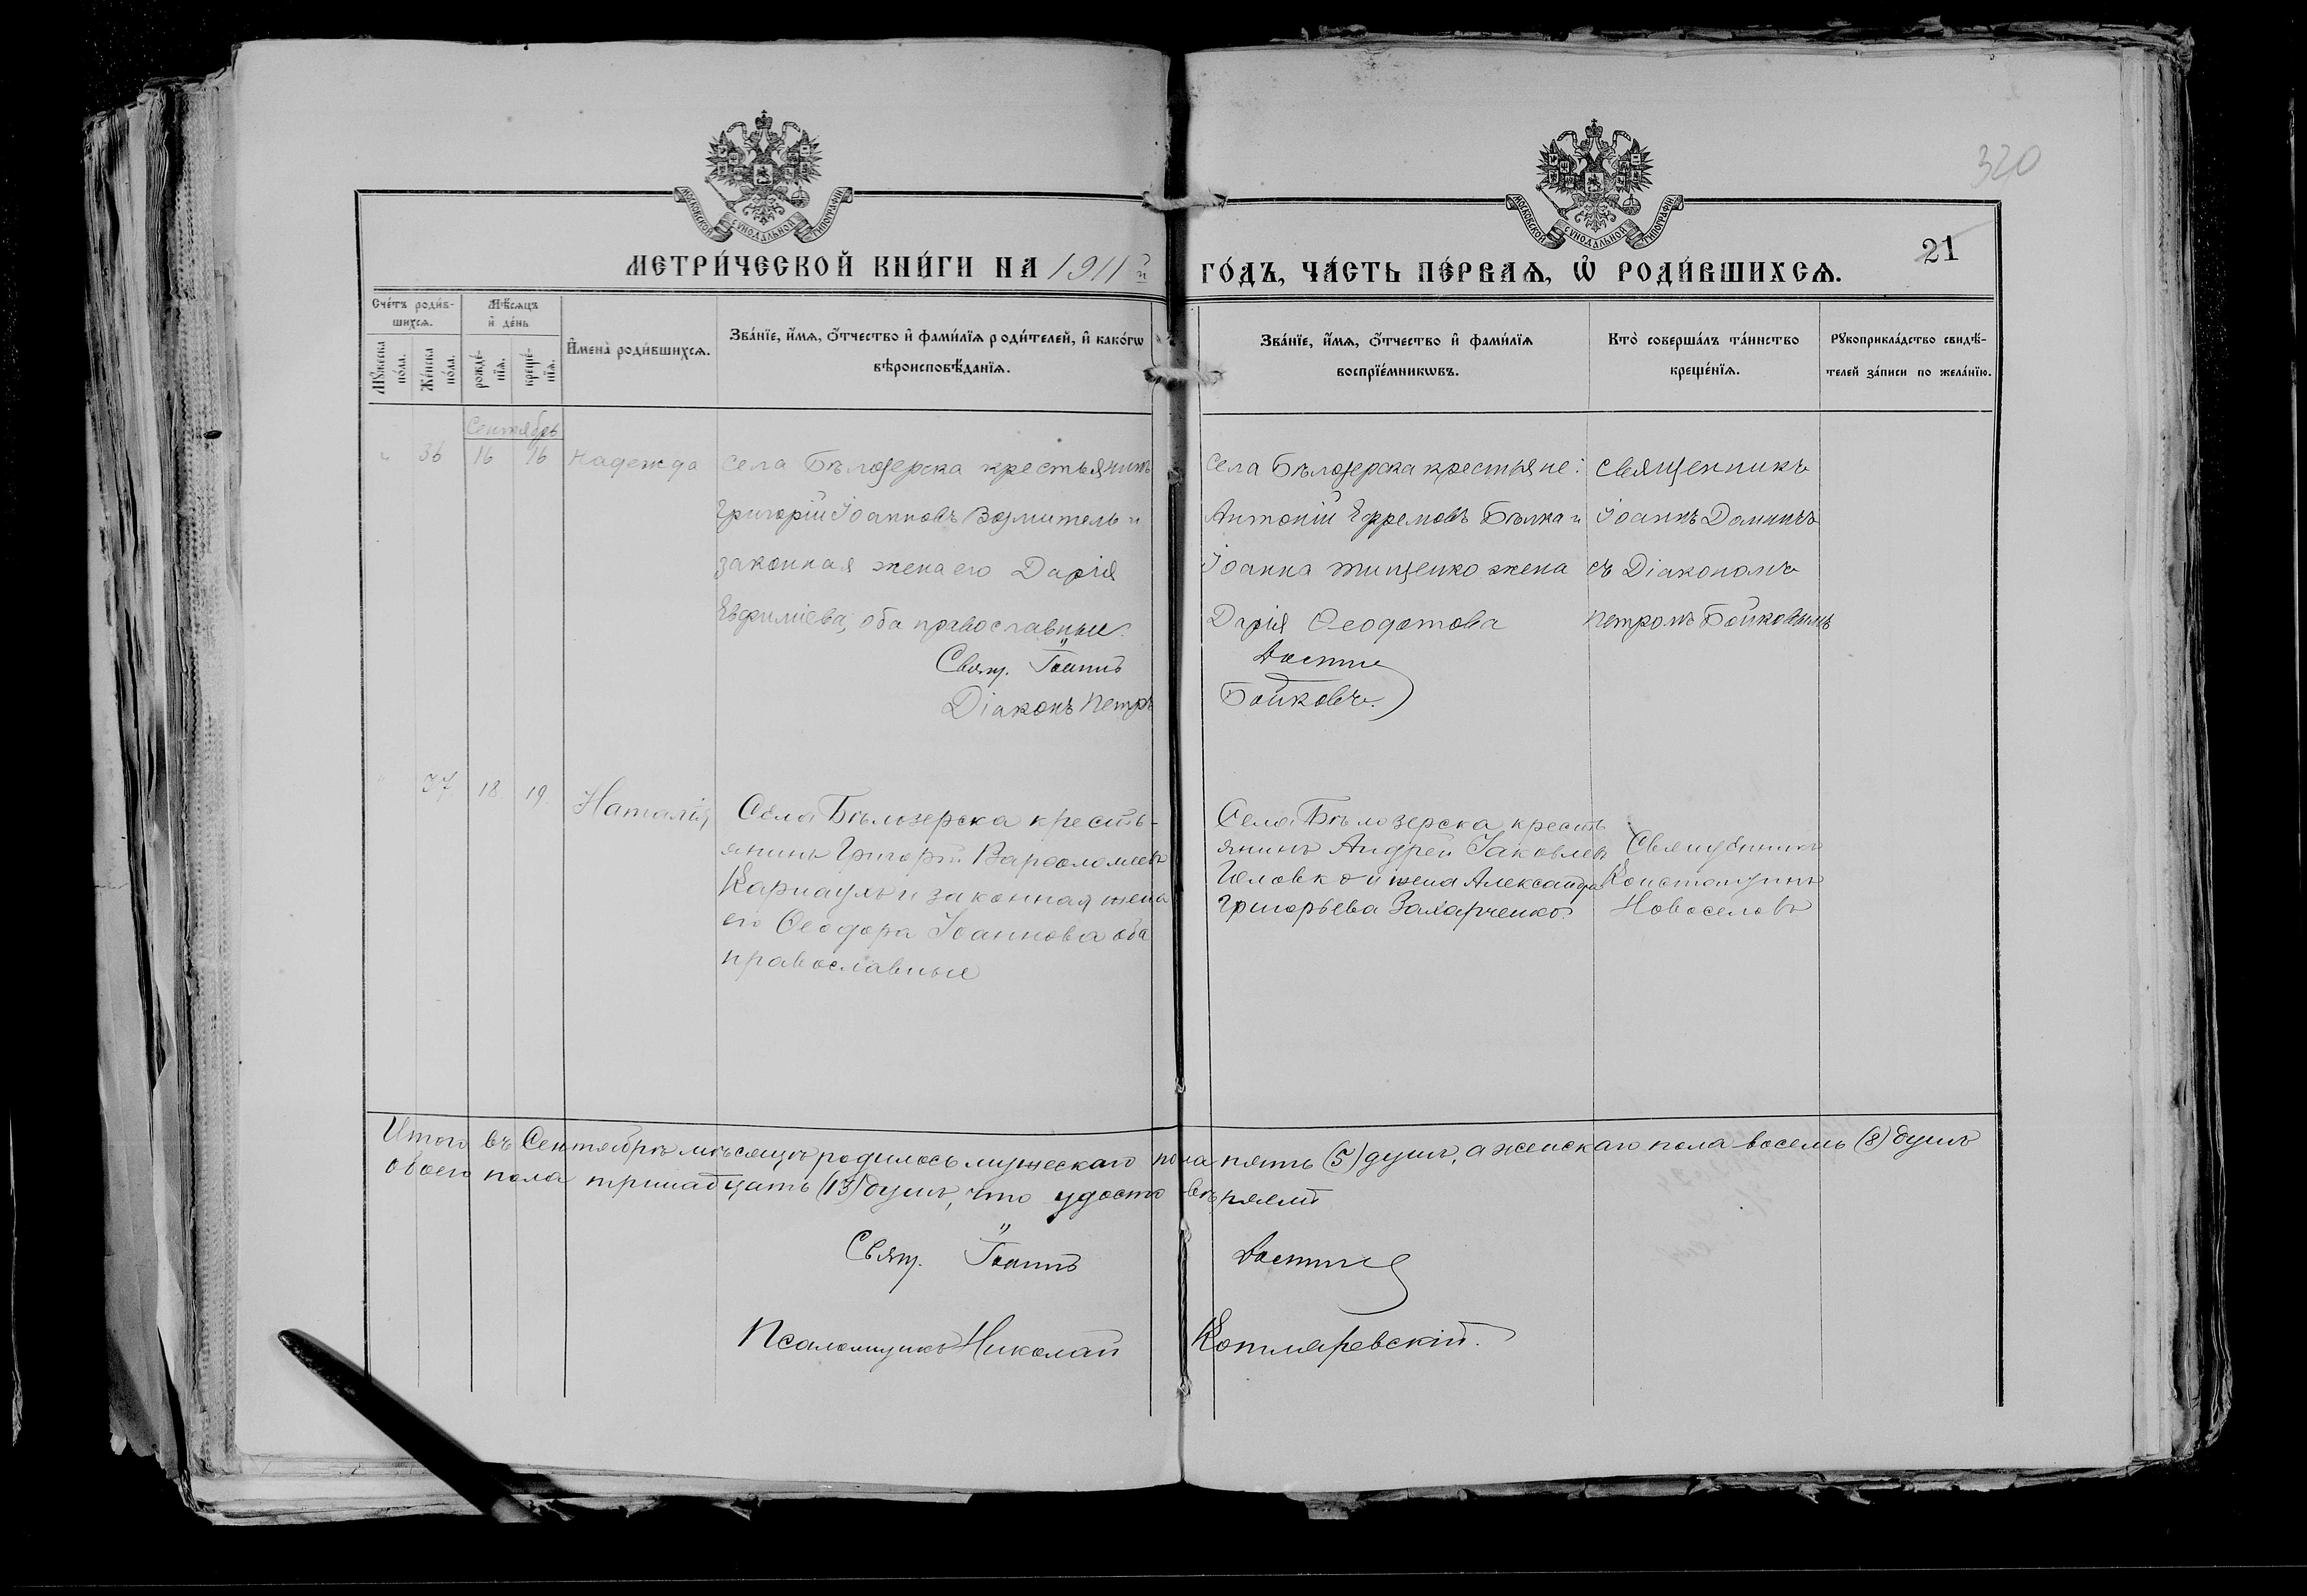 320
МОСКОВСКОЙ СѴНОДАЛЬНОЙ ТИПОГРАФІИ
МОСКОВСКОЙ СѴНОДАЛЬНОЙ ТИПОГРАФІИ
21
МЕТРИ́ЧЕСКОЙ КНИ́ГИ НА 1911й ГО́ДЪ, ЧА́СТЬ ПЕ́РВАѦ, Ѡ҆ РОДИ́ВШИХСѦ.
Сче́тъ роди́в-
шихсѧ.
Мꙋ́жеска по́ла.
Же́нска по́ла.
Мѣ́сѧцъ
и҆ де́нь
рожде́-
нїѧ.
креще́-
нїѧ.
И҆мена̀ роди́вшихсѧ.
Зва́нїе, и҆́мѧ, ѻ҆́тчество и҆ фами́лїѧ роди́телей, и҆ како́гѡ
вѣроисповѣ́данїѧ.
Зва́нїе, и҆́мѧ, ѻ҆́тчество и҆ фами́лїѧ
воспрїе́мникѡвъ.
Кто̀ соверша́лъ та́инство
креще́нїѧ.
Рꙋкоприкла́дство свидѣ́-
телей за́писи по жела́нїю.
Сентябрь
36 16 16 Надежда
села Бѣлозерска крестьянинъ
Григорій Іоанновъ Возмитель и
законная жена его Дарія
Евфиміева, оба православные.
Свящ. Іоаннъ
Діаконъ Петръ Бойковъ.
села Бѣлозерска крестьяне:
Антоній Ефремовъ Бѣлка и
Іоанна Тищенко жена
Дарія Ѳеодотова
священникъ
Іоаннъ
съ Діакономъ
Петромъ Бойковымъ
37 18 19 Наталія
Села Бѣлозерска кресть-
янинъ Григорій Варѳоломеевъ
Карнаухъ и законная жена
его Ѳеодора Іоаннова оба
православные
Села Бѣлозерска кресть
янинъ Андрей Іаковлевъ
Головко и жена Александра
Григорьева Захарченко.
Священникъ
Константинъ
Новоселовъ
Итого въ Сентябрѣ мѣсяцѣ родилось мужескаго пола пять (5) душъ, а женскаго пола восемь (8) душъ
обоего пола тринадцать (13) душъ, что удостовѣряемъ
Свящ. Іоаннъ
Псаломщикъ Николай Котляревскій.